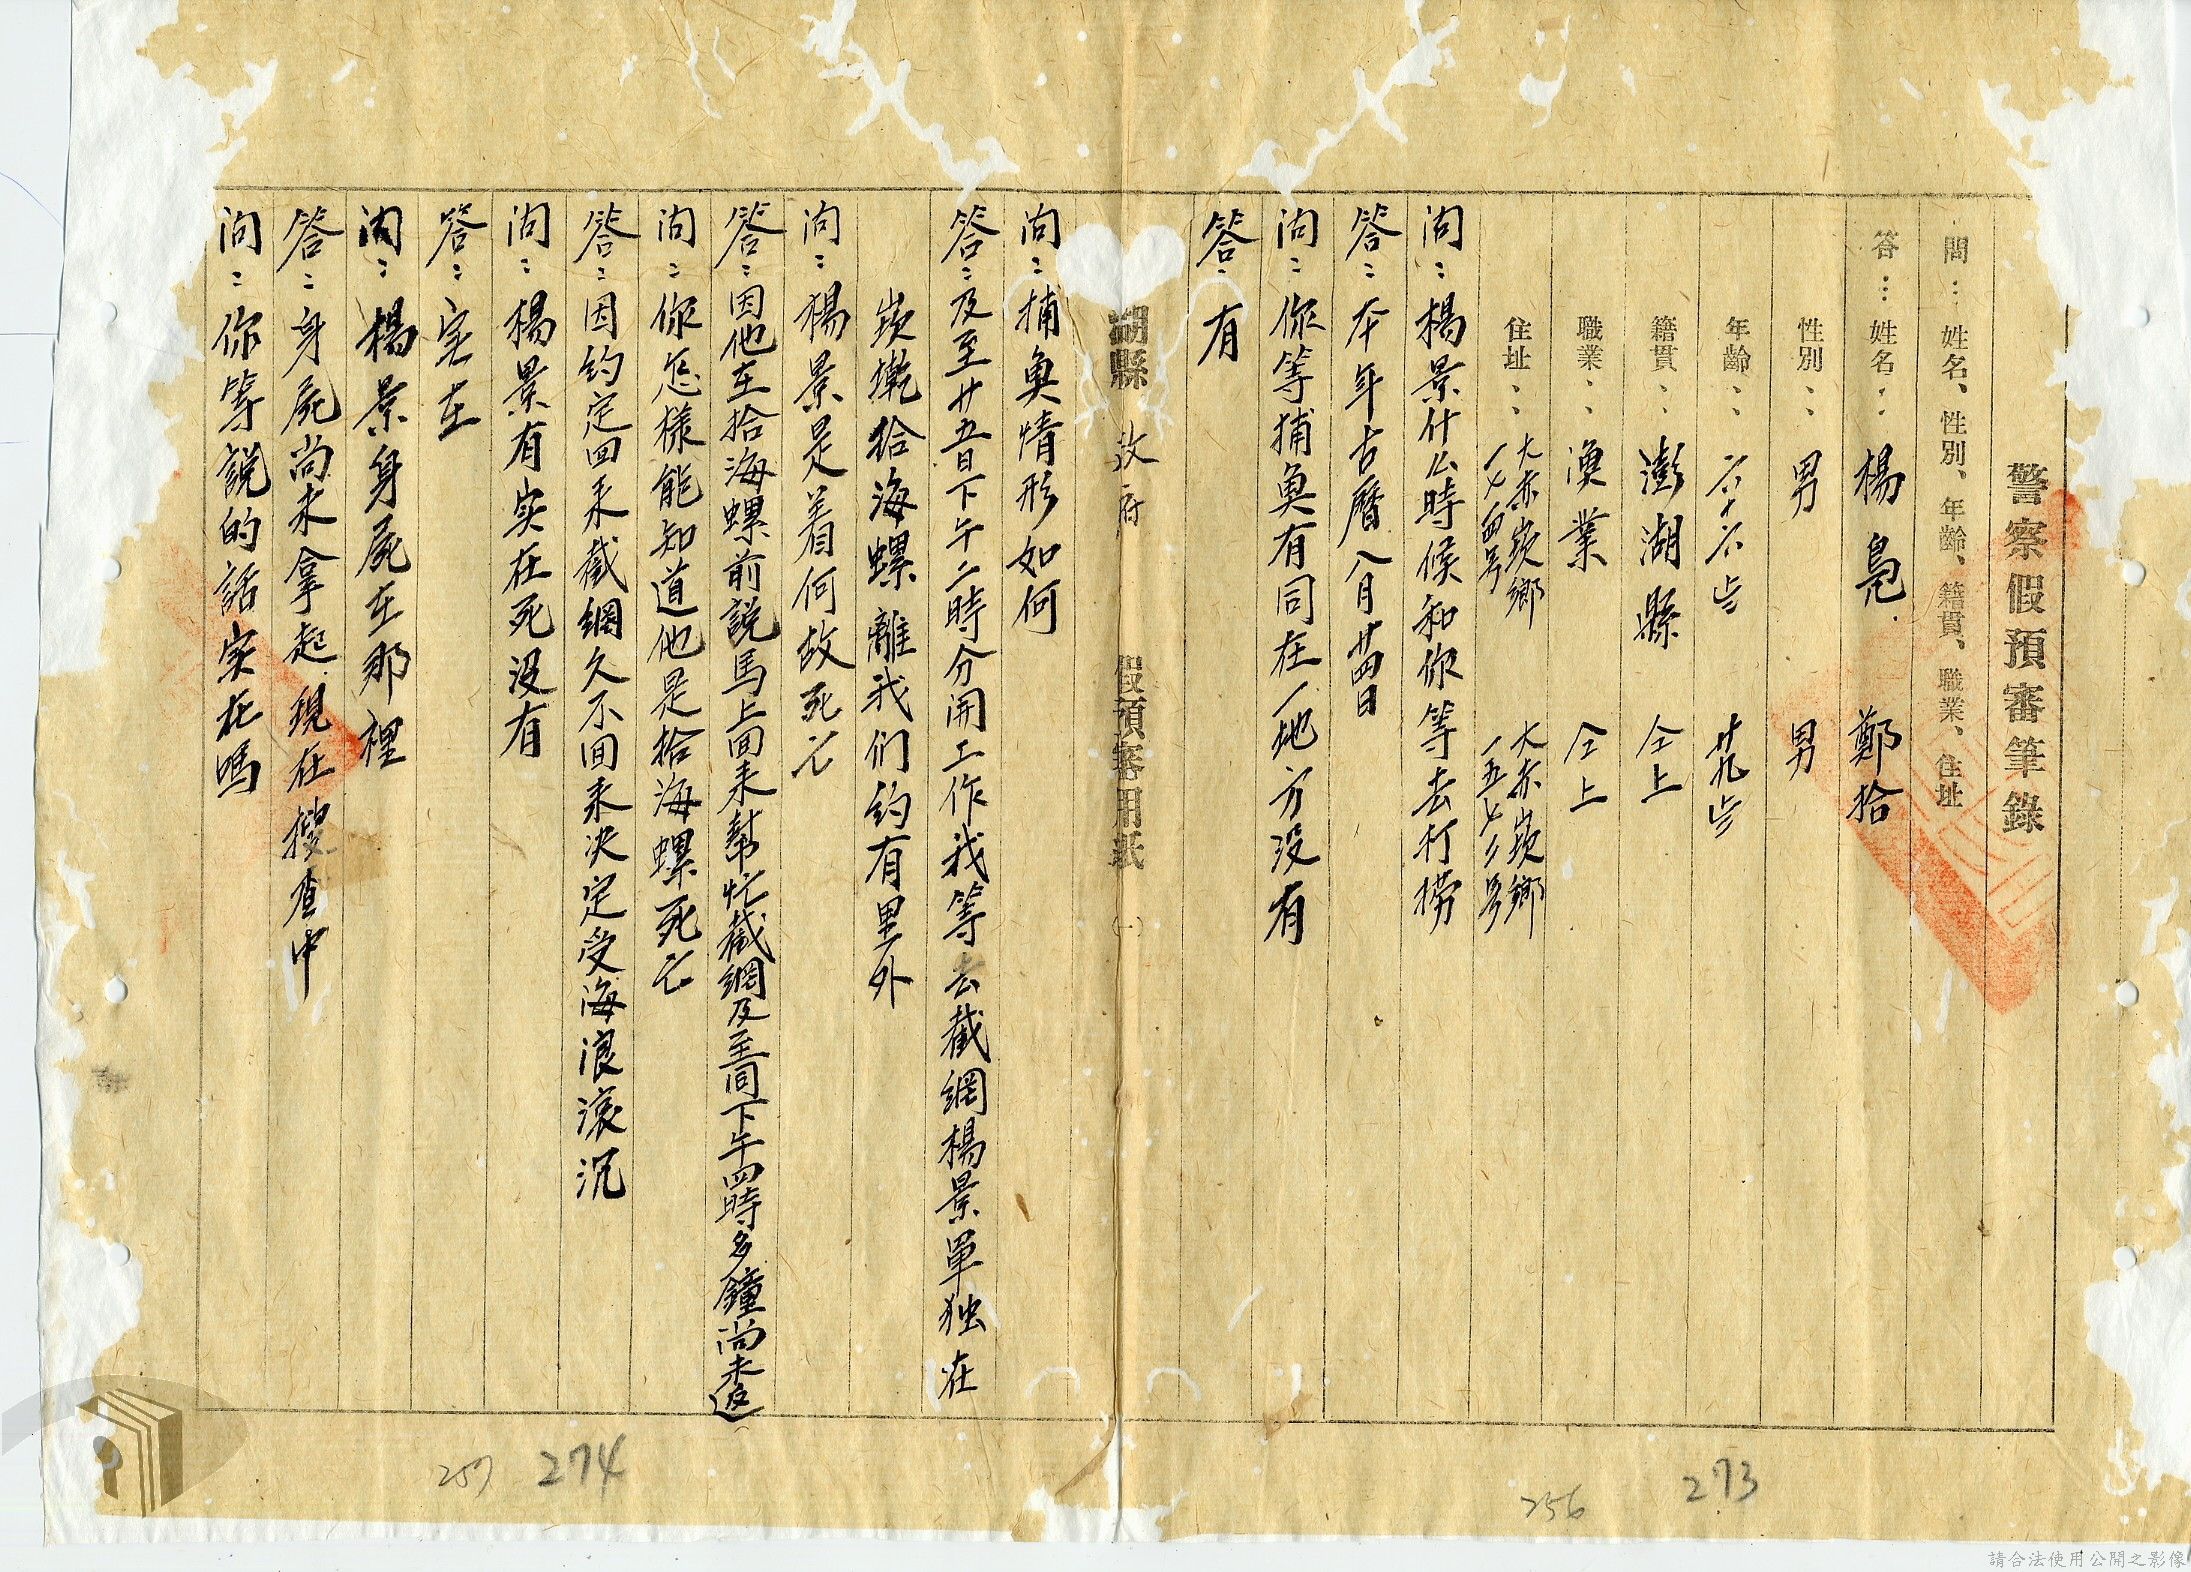 警察假預審筆錄
問：姓名、性別、年齡、籍貫、職業、住址
答：姓名：楊凫　鄭拾
性別：男　男
年齡：六十六岁　廿九岁
籍貫：澎湖縣　仝上
職業：漁業　仝上
住址：大赤崁鄉一七四号　大赤崁鄉一五七之2号
问：楊景什么時候和你等去打撈
答：本年古曆八月廿四日
问：你等捕魚有同在一地方没有
答：有
湖縣政府　假預審用紙　(一)
问：捕魚情形如何
答：及至廿五日下午二時分開工作我等去截網楊景单独在
崁墘拾海螺離我们約有里外
问：楊景是着何故死亡
答：因他在拾海螺前說馬上回来幫忙截網及至同下午四時多鐘尚未返
问：你怎樣能知道他是拾海螺死亡
答：因约定回来截網久不回来决定受海浪滚沉
问：楊景有实在死没有
答：实在
问：楊景身屍在那裡
答：身屍尚未拿起現在搜查中
问：你等說的話实在嗎
273
256
274
257
請合法使用公開之影像